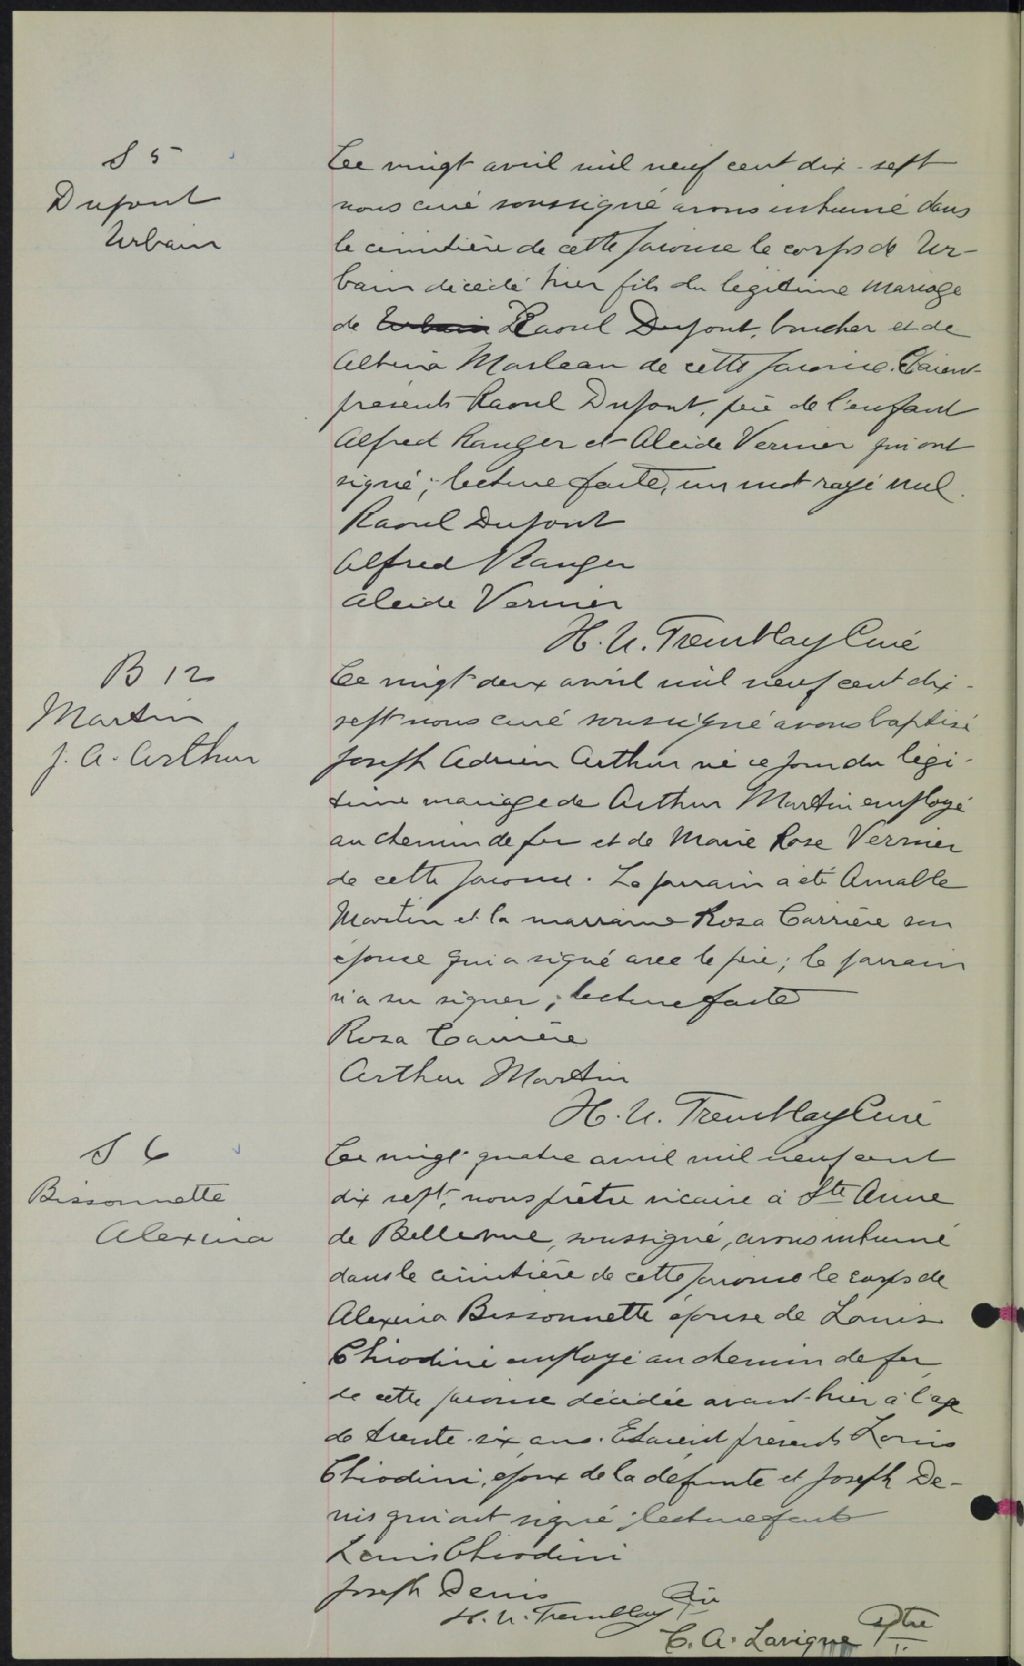 S 5
Dupont
Urbain
Ce vingt avril mil neuf cent dix-sept
nous curé soussigné avons inhumé dans
le cimetière de cette paroisse le corps de Ur-
bain décédé hier fils du légitime mariage
de Urbain Raoul Dupont, boucher et de
Albina Marleau de cette paroisse. Etaient
présents Raoul Dupont, père de l'enfant
Alfred Ranger et Alcide Vernier qui ont
signé; lecture faite, un mot rayé nul.
Raoul Dupont
Alfred Ranger
Alcide Vernier
H. U. Tremblay Curé
B 12
Martin
J. A. Arthur
Ce vingt deux avril mil neuf cent dix-
sept nous curé soussigné avons baptisé
Joseph Adrien Arthur né ce jour du légi-
time mariage de Arthur Martin employé
au chemin de fer et de Marie Rose Vernier
de cette paroisse. Le parrain a été Amable
Martin et la marraine Rosa Carrière son
épouse qui a signé avec le père; le parrain
n'a su signer; lecture faite
Rosa Carrière
Arthur Martin
H. U. Tremblay Curé
S 6
Bissonnette
Alexina
Ce vingt quatre avril mil neuf cent
dix sept, nous prêtre vicaire à Ste Anne
de Bellevue, soussigné, avons inhumé
dans le cimetière de cette paroisse le corps de
Alexina Bissonnette épouse de Louis
Chiodini employé au chemin de fer
de cette paroisse décédée avant-hier à l'age
de trente-six ans. Etaient présents Louis
Chiodini, époux de la défunte et Joseph De-
nis qui ont signé; lecture faite
Louis Chiodini
Joseph Denis
H. U. Tremblay Ptre
C. A. Lavigne Ptre